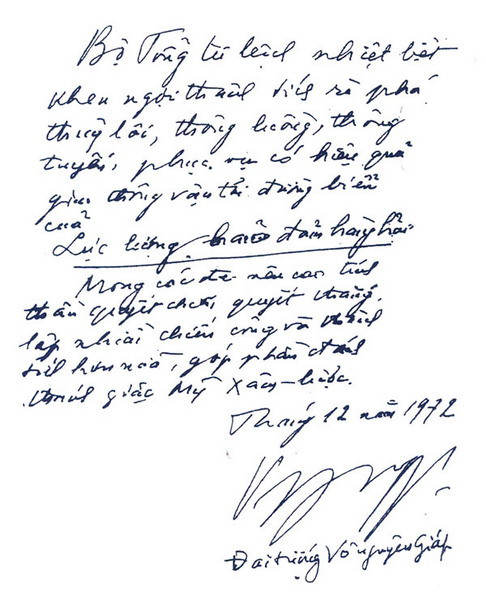 Bộ Tổng tư lệnh nhiệt liệt
khen ngợi thành tích rà phá
thuỷ lôi, thông luồng, thông
tuyến, phục vụ có hiệu quả
giao thông vận tải đường biển
của
Lực lượng bảo đảm hàng hải.
Mong các đ/c nêu cao tinh
thần quyết chiến, quyết thắng,
lập nhiều chiến công và thành
tích hơn nữa, góp phần đánh
thắng giặc Mỹ xâm-lược.
Tháng 12 năm 1972
Đại tướng Võ nguyên Giáp